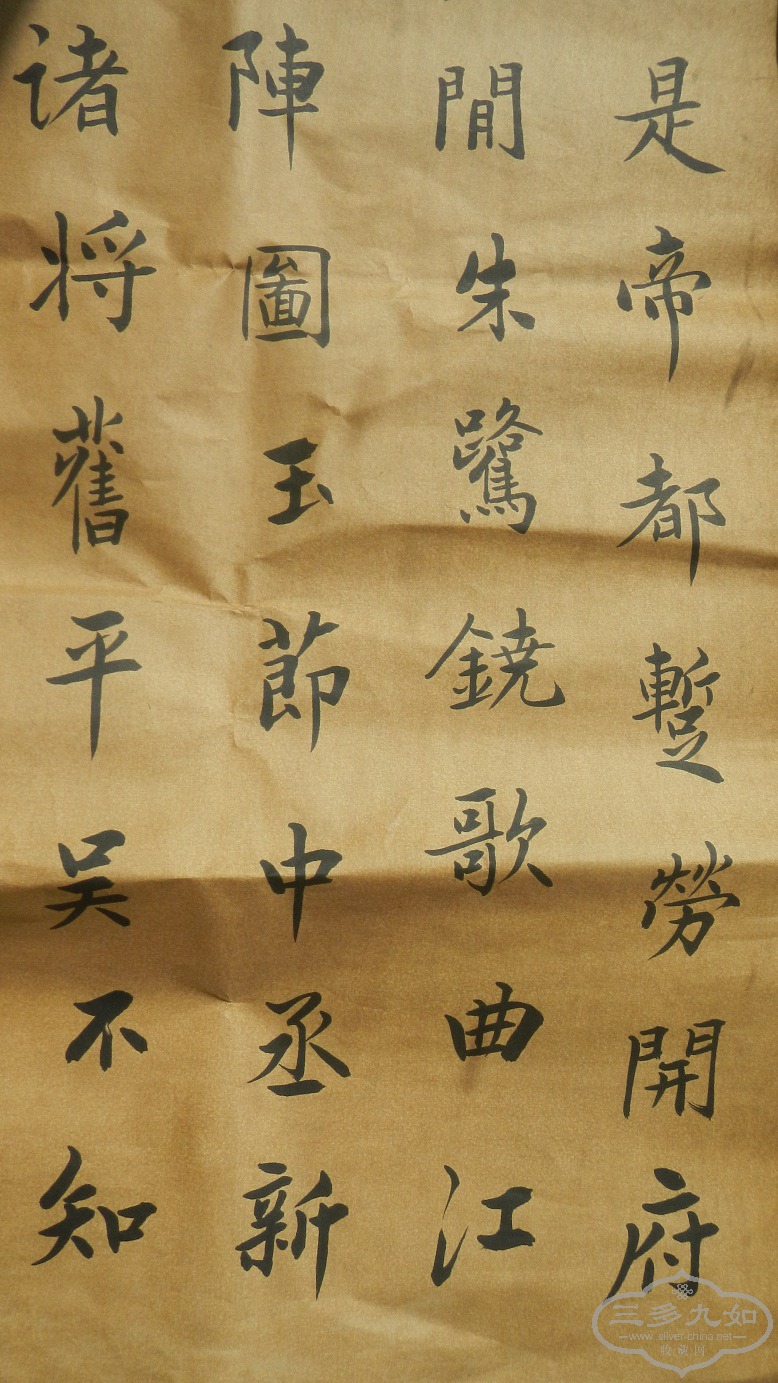 是帝都蹔勞開府
閒朱鷺鐃歌曲江
陣圖玉節中丞新
诸将舊平吴不知
三多九如
www.silver-china.net
收藏网